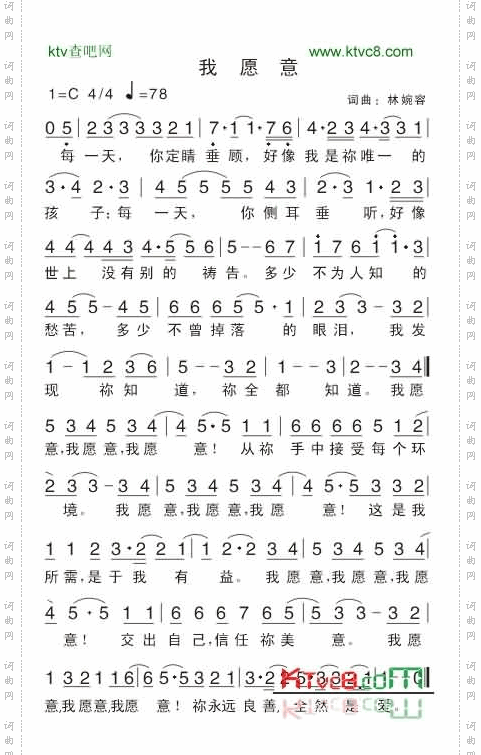 ktv查吧网 www.ktvc8.com
我 愿 意
1=C 4/4 ♩=78 词曲：林婉容
0 5 | 2 3 3 3 3 3 2 1 | 7·1 1·7 6 | 4·2 3 4·3 3 1 |
每一天，你定睛垂顾，好像我是祢唯一的
3·4 2·3 | 4 5 5 5 4 5 3 | 2·3 1·2 3 |
孩子；每一天，你侧耳垂听，好像
4 4 4 4 3 4·5 5 6 | 5 - - 6 7 | 1 7 6 1 1·3 |
世上没有别的祷告。多少不为人知的
4 5 5 - 4 5 | 6 6 6 5 5·1 | 2 3 3 - 3 2 |
愁苦，多少不曾掉落的眼泪，我发
1 - 1 2 3 6 | 5 - - 3 2 | 1 - - 3 | 2 - - 3 4 ‖
现祢知道，祢全都知道。我愿
5 3 4 5 3 4 5 3 4 | 4 5·5 1 1 | 6 6 6 6 6 5 6 7 |
意,我愿意,我愿意！从祢手中接受每个环
2 3 3 - 3 4 | 5 3 4 5 3 4 5 3 4 | 4 5·5 3 4 5 |
境。我愿意,我愿意,我愿意！这是我
1 1 2 3·2 2 1 | 1 - 2 3 4 | 5 3 4 5 3 4 5 3 4 |
所需,是于我有益。我愿意,我愿意,我愿
4 5·5 1 1 | 6 6 6 7 6 5 6 | 5 3 3 - 3 4 |
意！交出自己,信任祢美意。我愿
1 3 2 1 1 6 | 6 5·5 3 2 1
意,我愿意,我愿意！祢永远良善,全然是爱。
KTVC8.COM
词曲网
词曲网
词曲网
词曲网
词曲网
词曲网
词曲网
词曲网
词曲网
词曲网